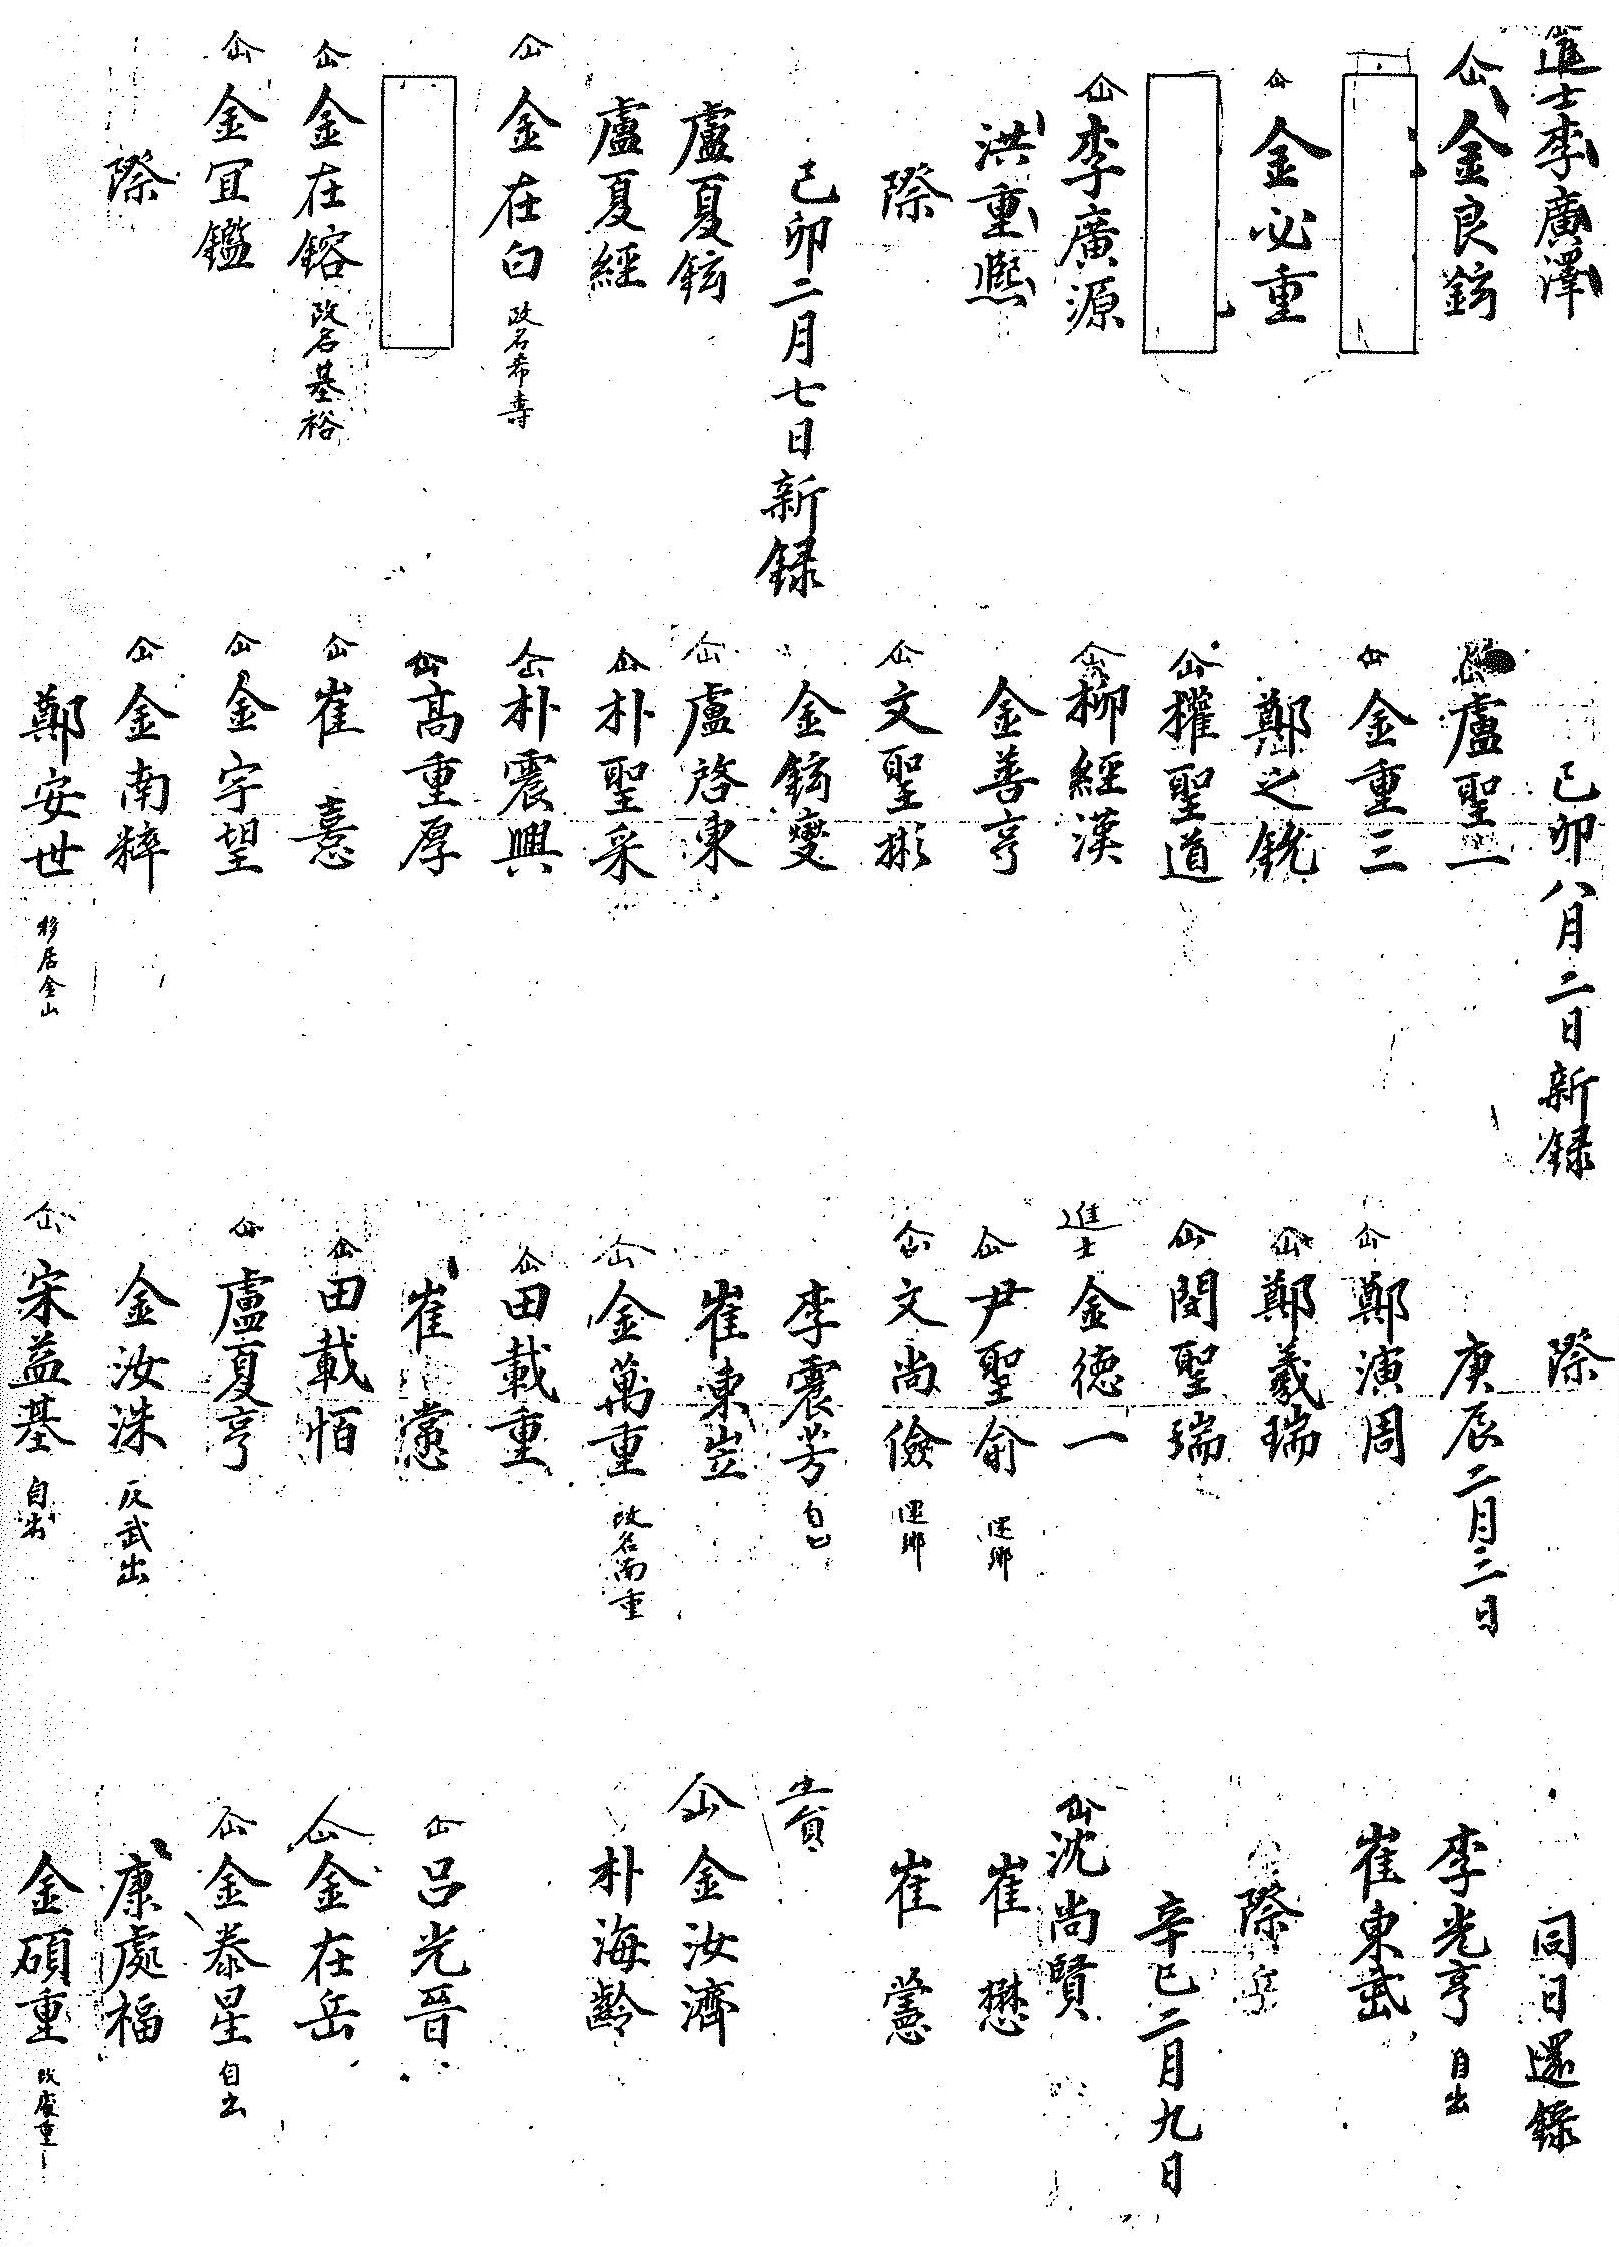 進士李廣澤
仚金良鉉
仚金必重
仚李廣源
洪重熈
際
己卯二月七日新録
盧夏鉉
盧夏經
仚金在白 改名希壽
仚金在鎔 改名基裕
仚金宜鑑
際
己卯八月二日新録
仚盧聖一
仚金重三
鄭之銑
仚權聖道
仚柳經漢
金善亨
仚文聖彬
金鉉燮
仚盧啓東
仚朴聖采
仚朴震興
仚高重厚
仚崔憙
仚金宇望
仚金南粹
鄭安世 移居金山
際
庚辰二月三日
仚鄭演周
仚鄭羲瑞
仚閔聖瑞
進士金德一
仚尹聖俞 還鄉
仚文尚儉 還鄉
李震芳 自出
崔東岦
仚金萬重 改名南重
仚田載重
崔
仚田載恒
仚盧夏亨
金汝洙 反武出
仚宋益基 自出
同日還錄
李光亨 自出
崔東
際
辛巳二月九日
仚沈尚賢
崔懋
崔
生員
仚金汝濟
朴海齡
仚呂光晉
仚金在岳
仚金泰星 自出
康處福
金碩重